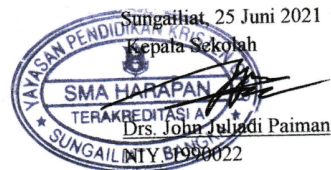 Sungailiat, 25 Juni 2021
Kepala Sekolah
YAYASAN PENDIDIKAN KRISTEN
SMA HARAPAN
TERAKREDITASI A
SUNGAILIAT BANGKA
Drs. John Juliadi Paiman
NIY. 1990022